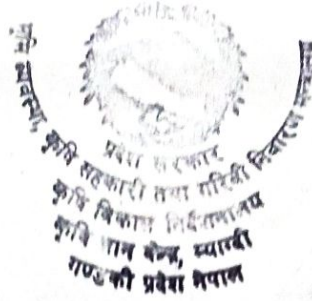 प्रदेश सरकार
भूमि व्यवस्था, कृषि सहकारी तथा गरिबी निवारण मन्त्रालय
कृषि विकास निर्देशनालय
कृषि ज्ञान केन्द्र, म्याग्दी
गण्डकी प्रदेश नेपाल